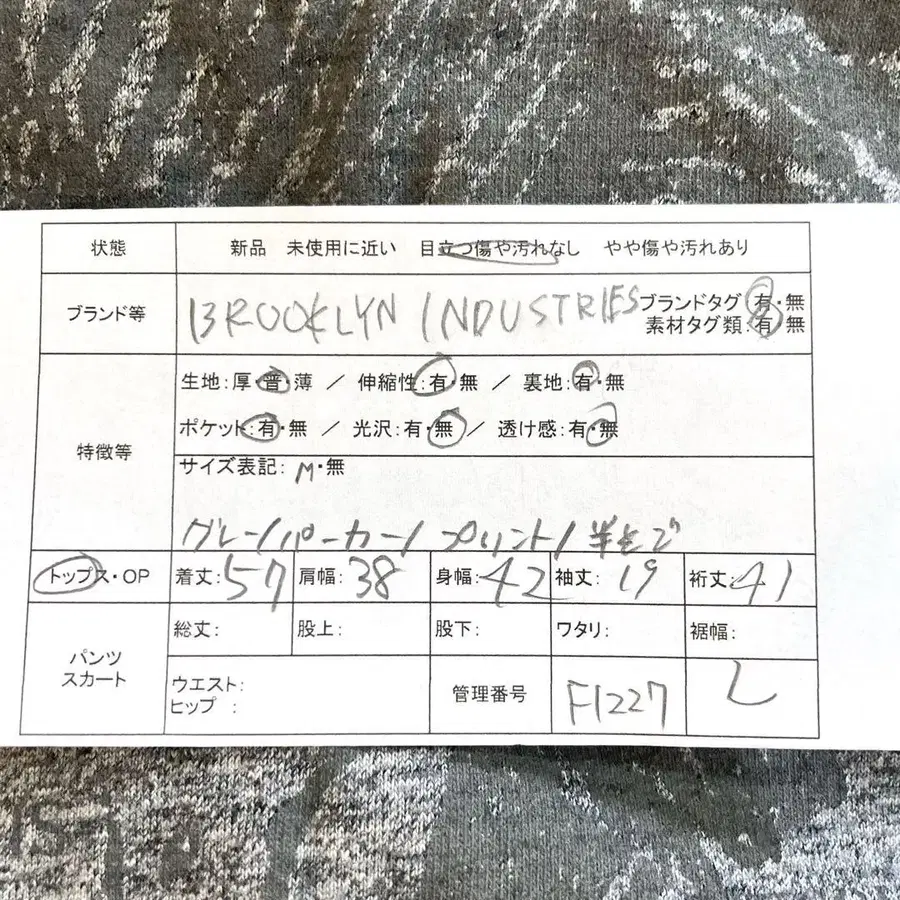 状態 新品 未使用に近い 目立つ傷や汚れなし やや傷や汚れあり
ブランド等 BROOKLYN INDUSTRIES ブランドタグ:有・無
素材タグ類:有・無
特徴等 生地:厚・普・薄 / 伸縮性:有・無 / 裏地:有・無
ポケット:有・無 / 光沢:有・無 / 透け感:有・無
サイズ表記: M・無
グレー/パーカー/プリント/半そで
トップス・OP 着丈:57 肩幅:38 身幅:42 袖丈:19 裄丈:41
パンツ スカート 総丈: 股上: 股下: ワタリ: 裾幅:
ウエスト:
ヒップ : 管理番号 F1227 L